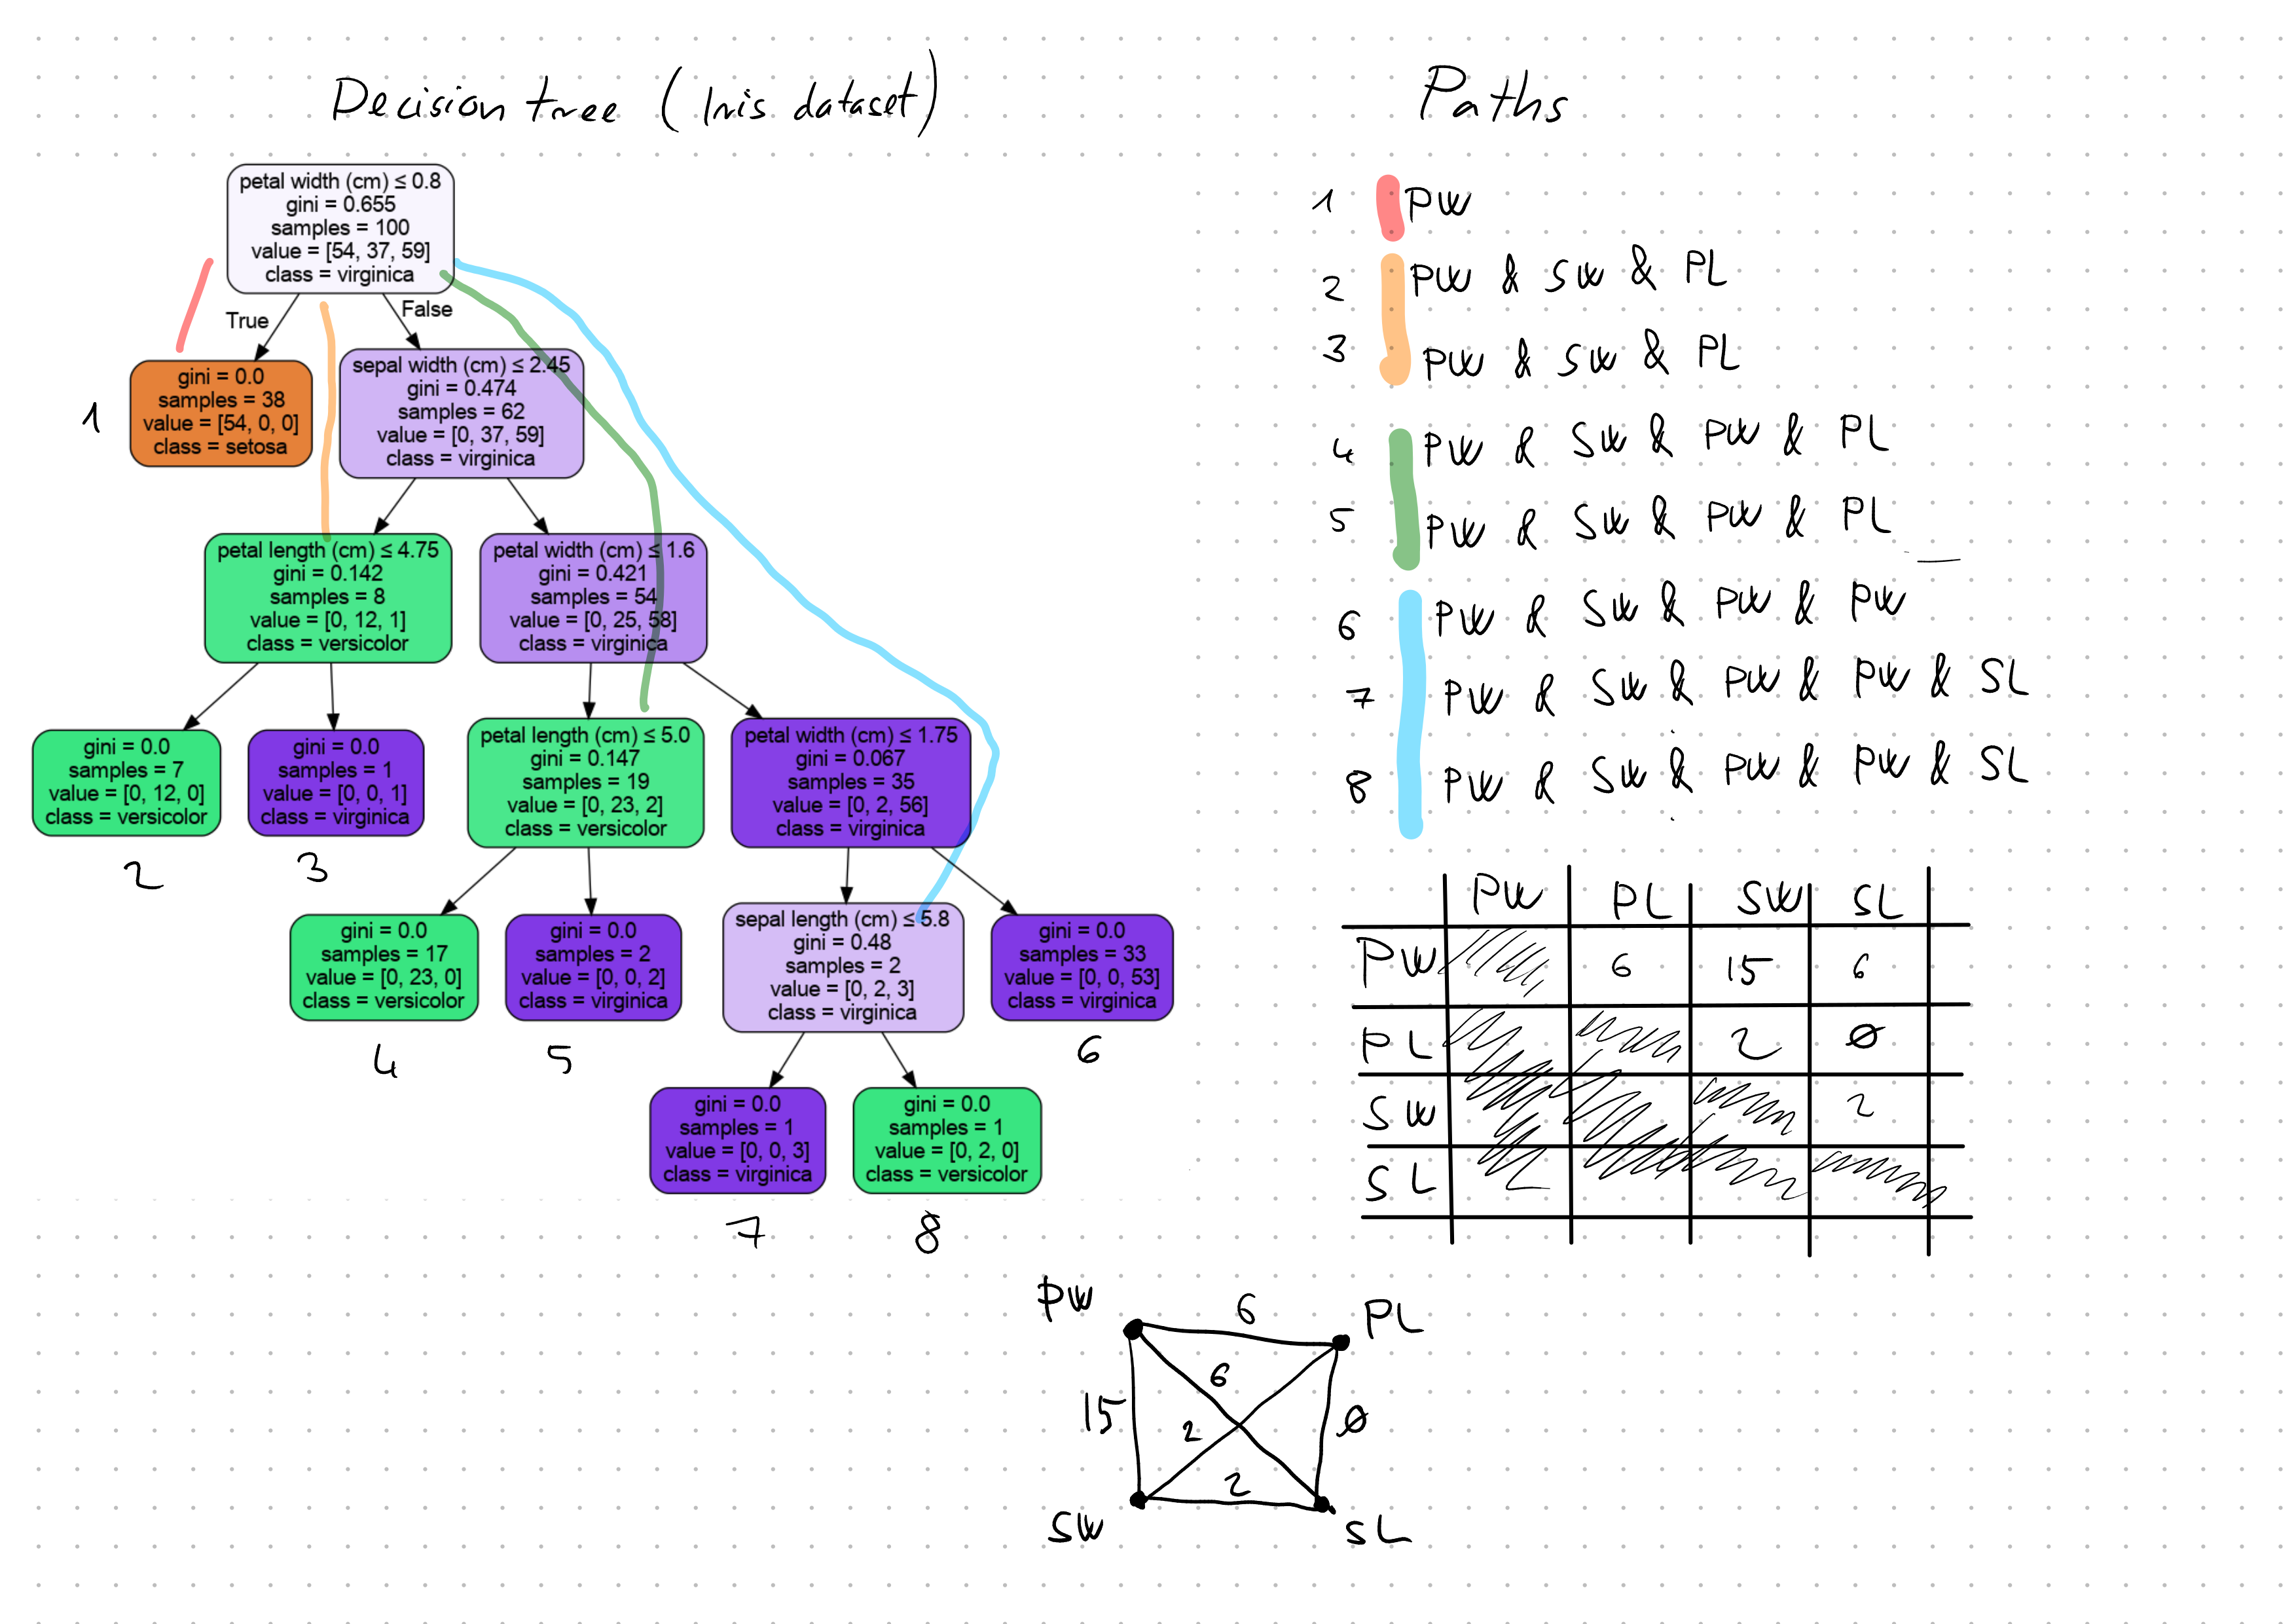 Decision tree (Iris dataset)
petal width (cm) ≤ 0.8
gini = 0.655
samples = 100
value = [54, 37, 59]
class = virginica
True
False
gini = 0.0
samples = 38
value = [54, 0, 0]
class = setosa
1
sepal width (cm) ≤ 2.45
gini = 0.474
samples = 62
value = [0, 37, 59]
class = virginica
petal length (cm) ≤ 4.75
gini = 0.142
samples = 8
value = [0, 12, 1]
class = versicolor
petal width (cm) ≤ 1.6
gini = 0.421
samples = 54
value = [0, 25, 58]
class = virginica
gini = 0.0
samples = 7
value = [0, 12, 0]
class = versicolor
2
gini = 0.0
samples = 1
value = [0, 0, 1]
class = virginica
3
petal length (cm) ≤ 5.0
gini = 0.147
samples = 19
value = [0, 23, 2]
class = versicolor
petal width (cm) ≤ 1.75
gini = 0.067
samples = 35
value = [0, 2, 56]
class = virginica
gini = 0.0
samples = 17
value = [0, 23, 0]
class = versicolor
4
gini = 0.0
samples = 2
value = [0, 0, 2]
class = virginica
5
sepal length (cm) ≤ 5.8
gini = 0.48
samples = 2
value = [0, 2, 3]
class = virginica
gini = 0.0
samples = 33
value = [0, 0, 53]
class = virginica
6
gini = 0.0
samples = 1
value = [0, 0, 3]
class = virginica
7
gini = 0.0
samples = 1
value = [0, 2, 0]
class = versicolor
8
Paths
1 PW
2 PW & SW & PL
3 PW & SW & PL
4 PW & SW & PW & PL
5 PW & SW & PW & PL
6 PW & SW & PW & PW
7 PW & SW & PW & PW & SL
8 PW & SW & PW & PW & SL
PW PL SW SL
PW 6 15 6
PL 2 Ø
SW 2
SL
PW 6 PL
6
15 2 Ø
2
SW SL